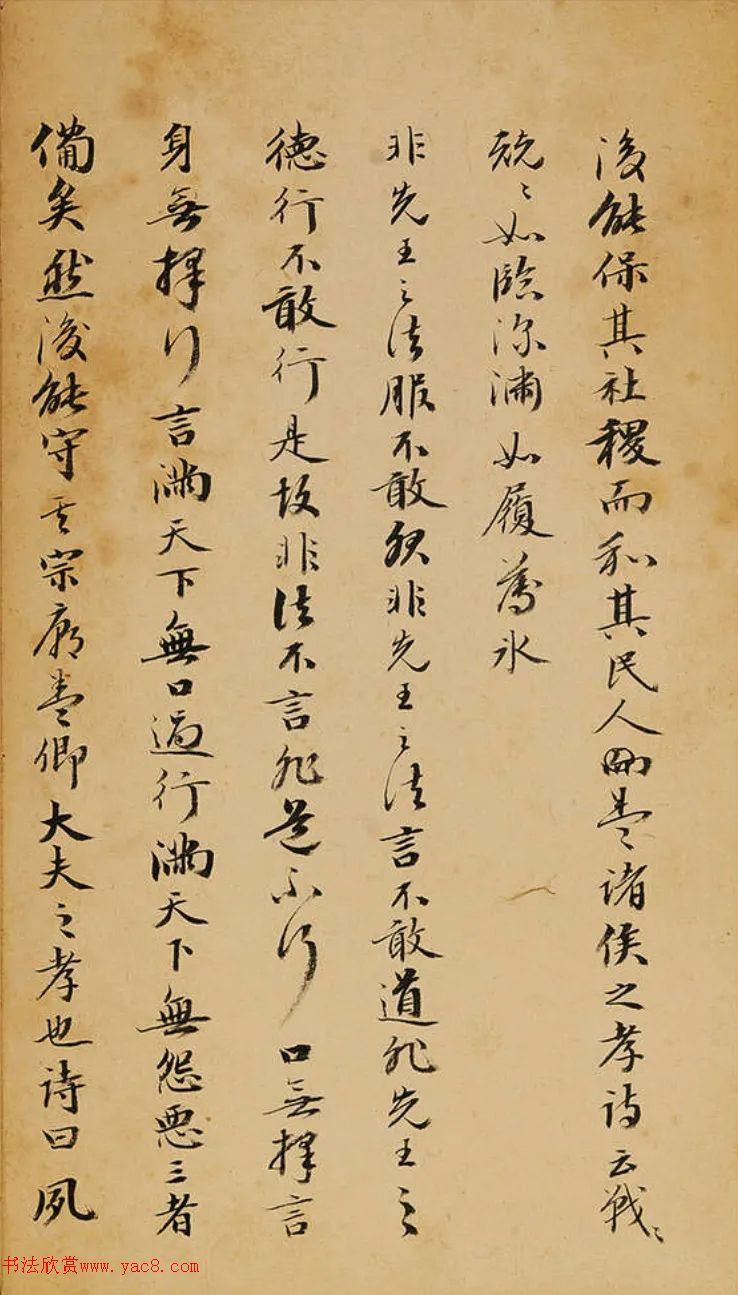 後能保其社稷而和其民人蓋諸侯之孝詩云戰〻
兢〻如臨深淵如履薄氷
非先王之法服不敢服非先王之法言不敢道非先王之
德行不敢行是故非法不言非道不行口無擇言
身無擇行言滿天下無口過行滿天下無怨惡三者
備矣然後能守其宗廟蓋卿大夫之孝也詩曰夙
书法欣赏www.yac8.com